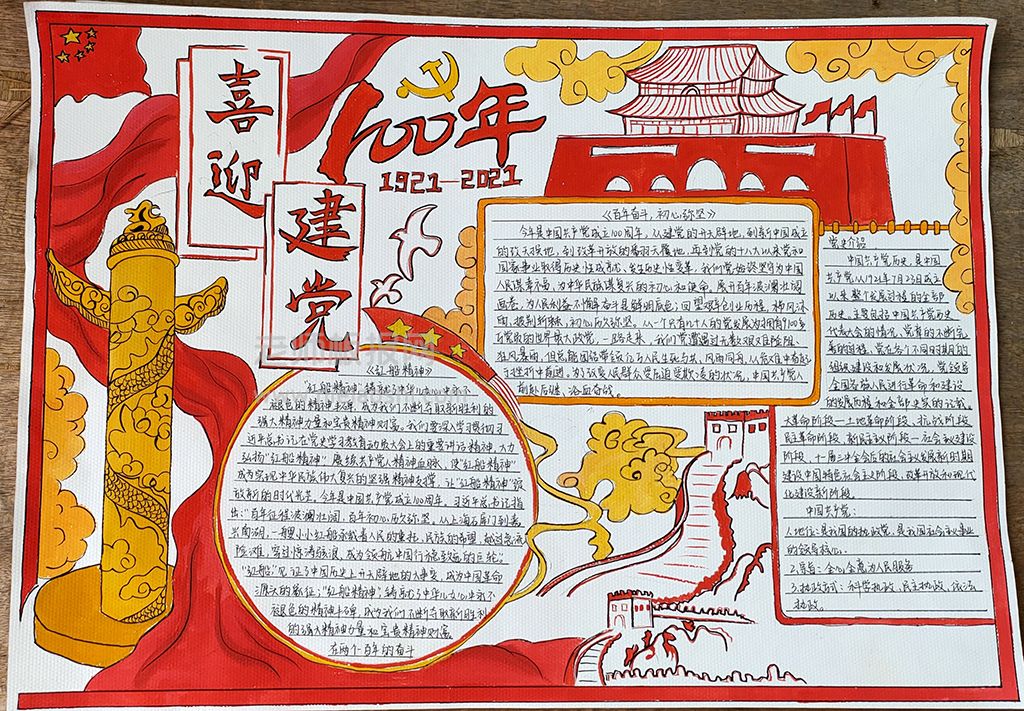 喜迎
建党
100年
1921—2021
《百年奋斗,初心弥坚》
今年是中国共产党成立100周年,从建党的开天辟地,到新中国成立
的改天换地,到改革开放的翻天覆地,再到党的十八大以来党和
国家事业取得历史性成就、发生历史性变革,我们党始终坚守为中国
人民谋幸福、为中华民族谋复兴的初心和使命,展开百年波澜壮阔
画卷,为人民利益不懈奋斗是鲜明底色;回望艰辛创业历程,栉风沐
雨、披荆斩棘,初心历久弥坚。从一个只有几十人的党发展为拥有9100多
万党员的世界最大政党,一路走来,我们党遭遇过无数艰难险阻、
狂风暴雨,但总能团结带领亿万人民生死与共、风雨同舟,从苦难中奋起
前赴后继、浴血奋战。
党史介绍
中国共产党历史,是中国
共产党从1921年7月23日成立
以来整个发展过程的全部
历史。主要包括中国共产党历史
代表大会的情况,党章的不断完
善的过程,党在各个不同时期的
组织建设和发展状况,党领导
全国各族人民进行革命和建设
的发展历程和全部史实的记载。
大革命阶段—土地革命阶段、抗战阶段、
民主革命阶段、新民主义阶段—社会主义建设
阶段、十届三中全会后的社会主义发展新时期
建设中国特色社会主义阶段、改革开放和现代
化建设新阶段。
中国共产党:
1.地位:是我国的执政党,是我国社会主义事业
的领导核心.
2.宗旨:全心全意为人民服务
3.执政方式:科学执政、民主执政、依法
执政。
《红船精神》
"红船精神"铸就了中华儿女心中永不
褪色的精神丰碑,成为我们不断夺取新胜利的
强大精神力量和宝贵精神财富。我们要深入学习贯彻习
近平总书记在党史学习教育动员大会上的重要讲话精神,大力
弘扬"红船精神"赓续共产党人精神血脉,使"红船精神"
成为实现中华民族伟大复兴的坚强精神支撑,让"红船精神"绽
放新的时代光芒。今年是中国共产党成立100周年。习近平总书记指
出:"百年征程波澜壮阔,百年初心历久弥坚。从上海石库门到嘉
兴南湖,一艘小小红船承载着人民的重托、民族的希望,越过急流
险滩,穿过惊涛骇浪,成为领航中国行稳致远的巨轮。"
"红船"见证了中国历史上开天辟地的大事变,成为中国革命
源头的象征;"红船精神"铸就了中华儿女心中永不
褪色的精神丰碑,成为我们不断夺取新胜利
的强大精神力量和宝贵精神财富。
在两个一百年的奋斗